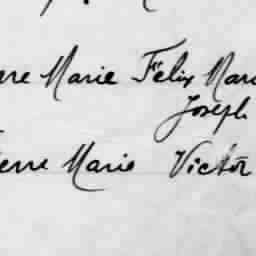 erre Marie Félix Marc
Joseph
ierre Marie Victor